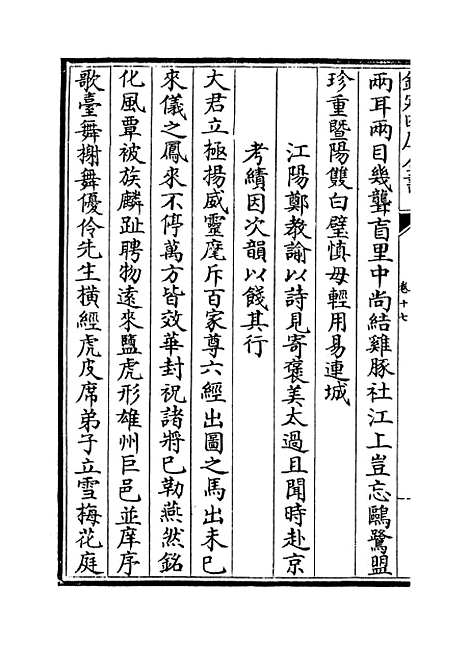 欽定四庫全書
卷十七
兩耳兩目幾聾盲里中尚結雞豚社江上豈忘鷗鷺盟
珍重暨陽雙白璧慎毋輕用易連城
江陽鄭教諭以詩見寄褒美太過且聞時赴京
考績因次韻以餞其行
大君立極揚威靈麾斥百家尊六經出圖之馬出未已
來儀之鳳來不停萬方皆效華封祝諸將已勒燕然銘
化風覃被族麟趾聘物遠來鹽虎形雄州巨邑並庠序
歌臺舞榭舞優伶先生橫經虎皮席弟子立雪梅花庭